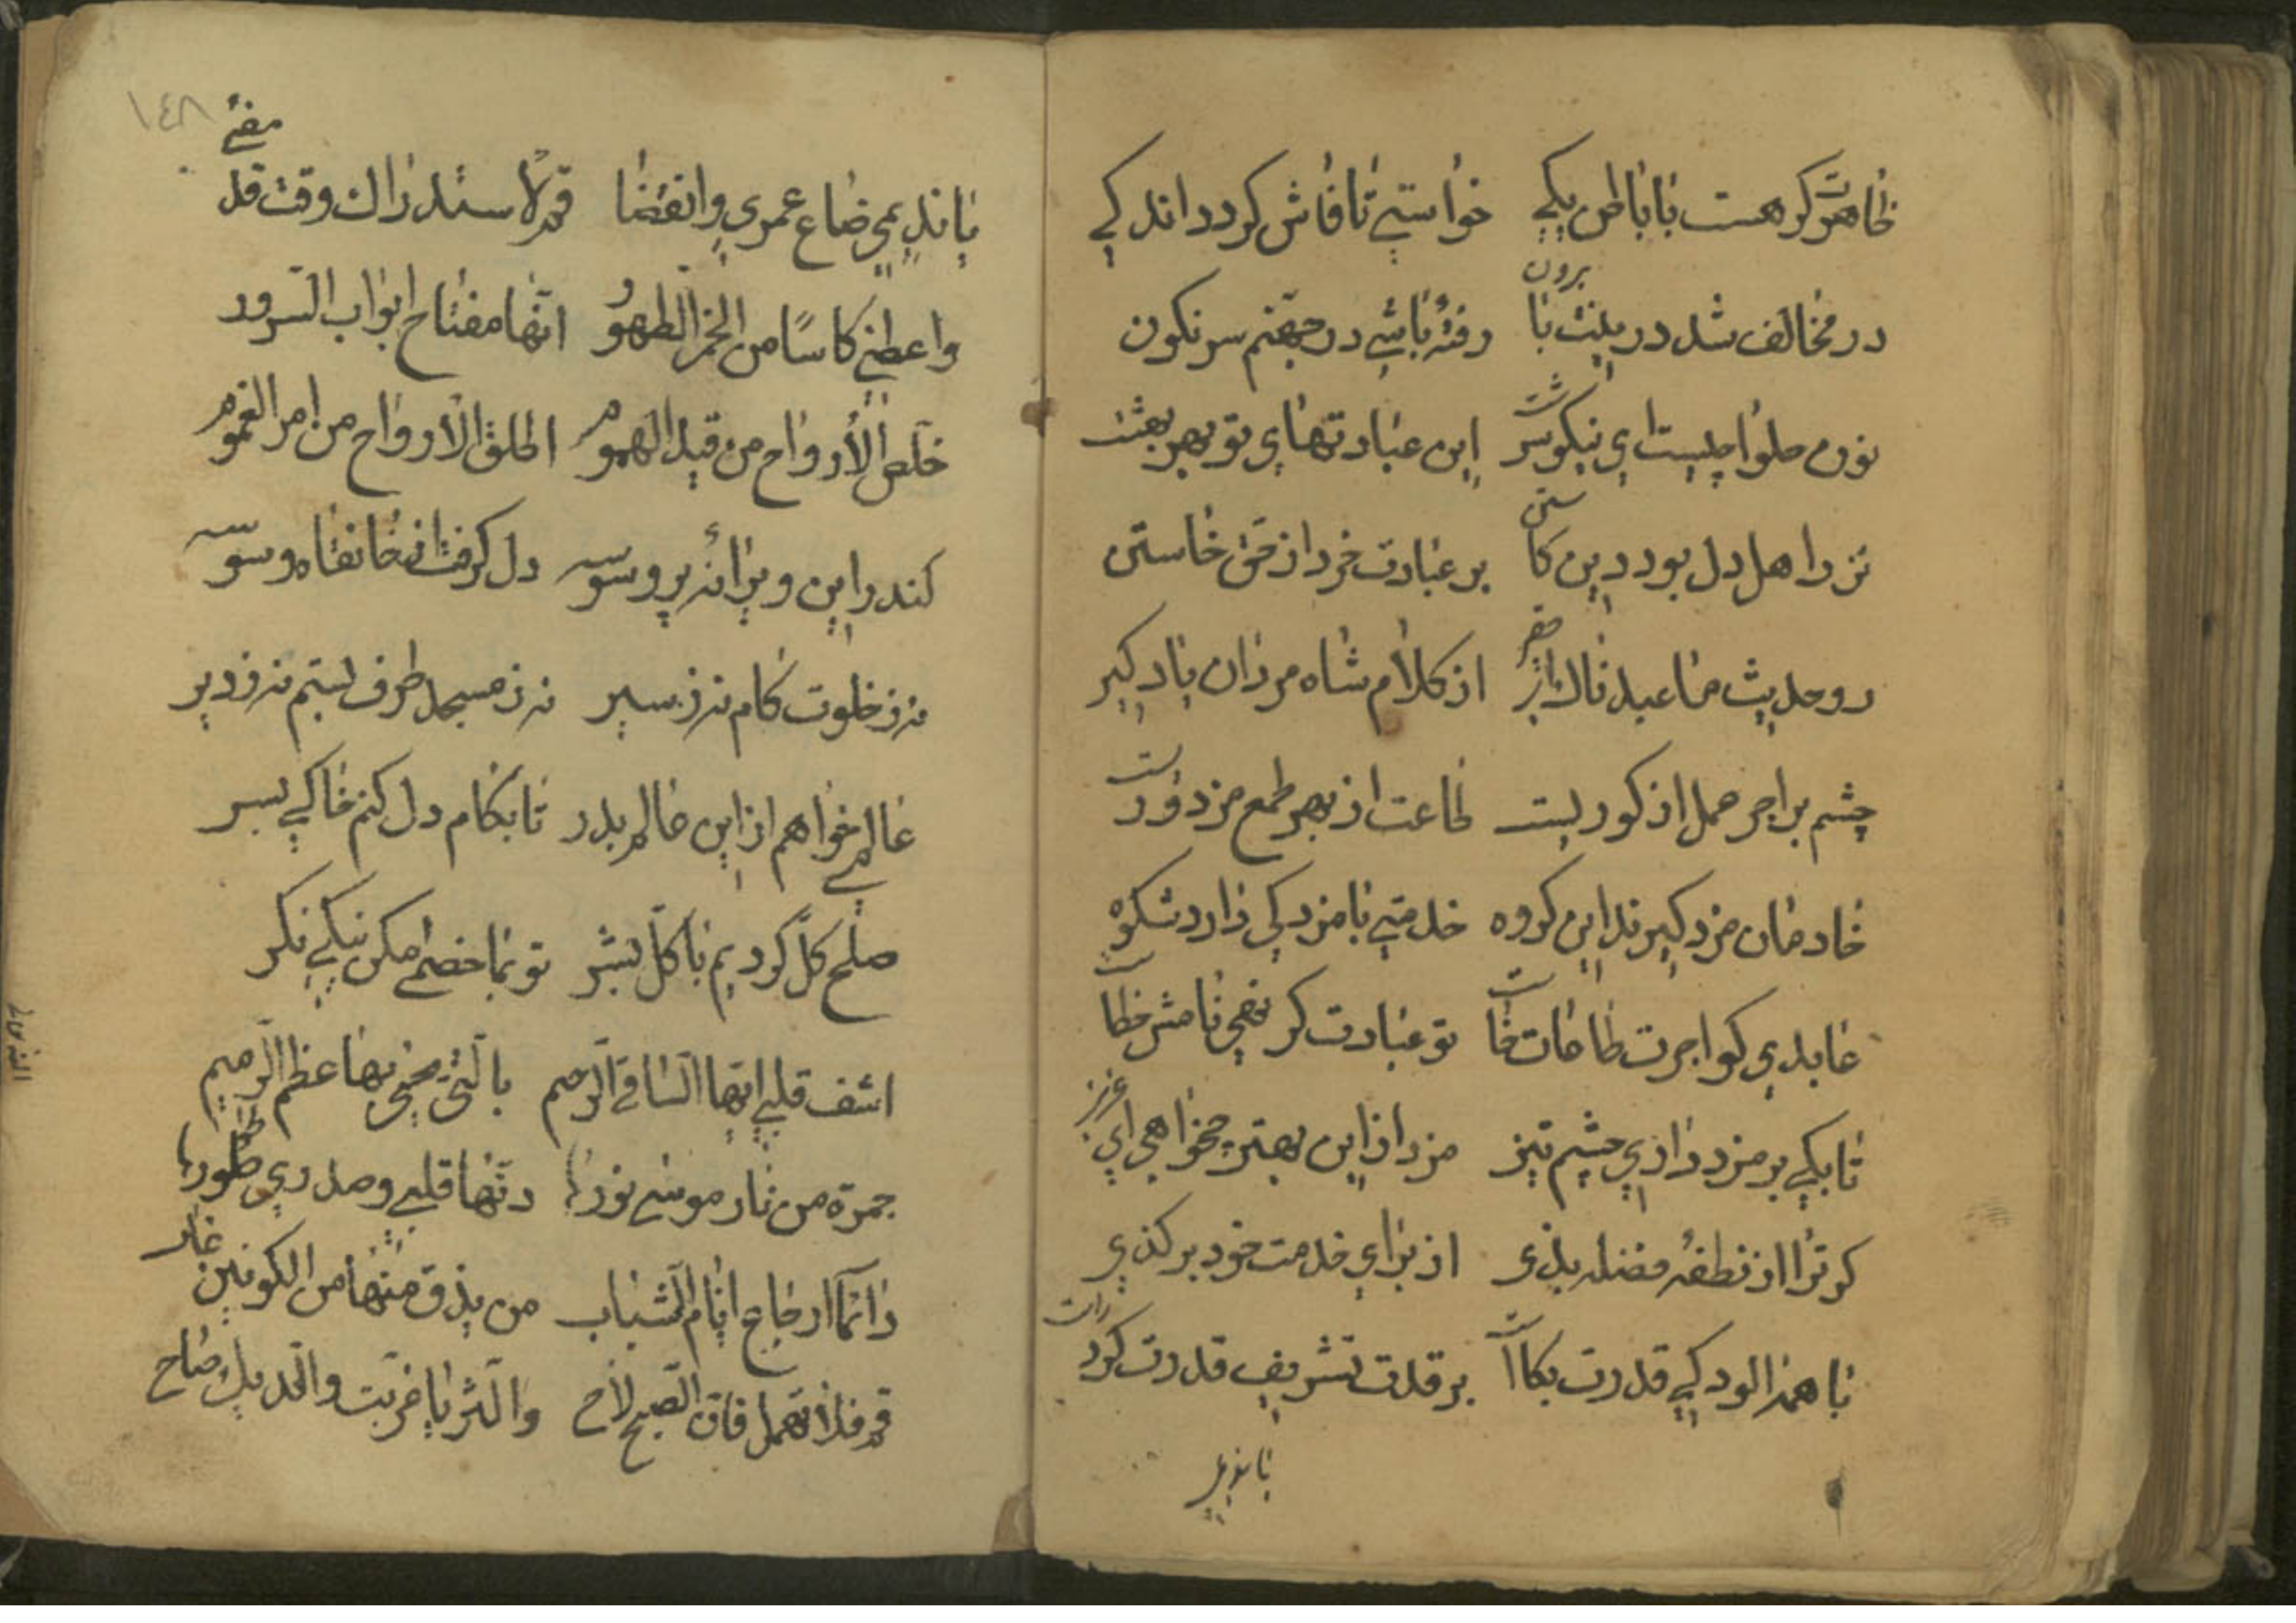 ظاهرت گر هست با باطن یکے خواستے تا فاش گردد اندکے
در مخالف شد درینت با برون رفتهٔ باشے در جهنم سرنگون
نون حلوا چیست ای نیکو سرشت این عبادتهای تو بهر بهشت
نزد اهل دل بود دین کاستن بر عبادت خرد از حق خاستن
رو حدیث ما عبدناك ای فقیر از کلام شاه مردان یاد گیر
چشم بر اجر عمل از کوریست طاعت از بهر طمع مزدوریست
خادمان مزد گیرند این گروه خدمتے با مزد کی دارد شکوه
عابدی کو اجرت طاعات خواست تو عبادت گر نهی نامش خطاست
تا بکے بر مزد داری چشم تیز مزد از این بهتر چخواهی ای عزیز
کو ترا از نطفهٔ فضله بدی از برای خدمت خود بر گذی
با همه آلودگے قدرت بکاست بر قدت تشریف قدرت کرد راست
یا ندیمی
١٤٨
یا ندیمی ضاع عمری وانقضا قم لاستدراك وقت قد مضے
واعطنے کاسًا من الخمر الطهور انها مفتاح ابواب السرور
خلص الأرواح من قید الهموم اطلق الأرواح من امر الغموم
کندر این ویرانه پر وسوسه دل گرفت از خانقاه و سوسه
نه ز خلوت کام نه ز سیر نه ز مسجد طرف بستم نه ز دیر
عالمے خواهم از این عالم بدر تا بکام دل کنم خاکے بسر
صلح کل کردیم با کل بشر تو بما خصمی مکن نیکے نگر
اشف قلبے ایها الساقے الرحیم بالتی یحیی بها عظم الرمیم
جمرة من نار موسے نورها دنها قلبے وصدری طورها
دائما ارجاع ایام الشباب من یذق منها من الکونین غاب
قم فلا تهمل فان الصبح لاح والثریا غربت والدیك صاح